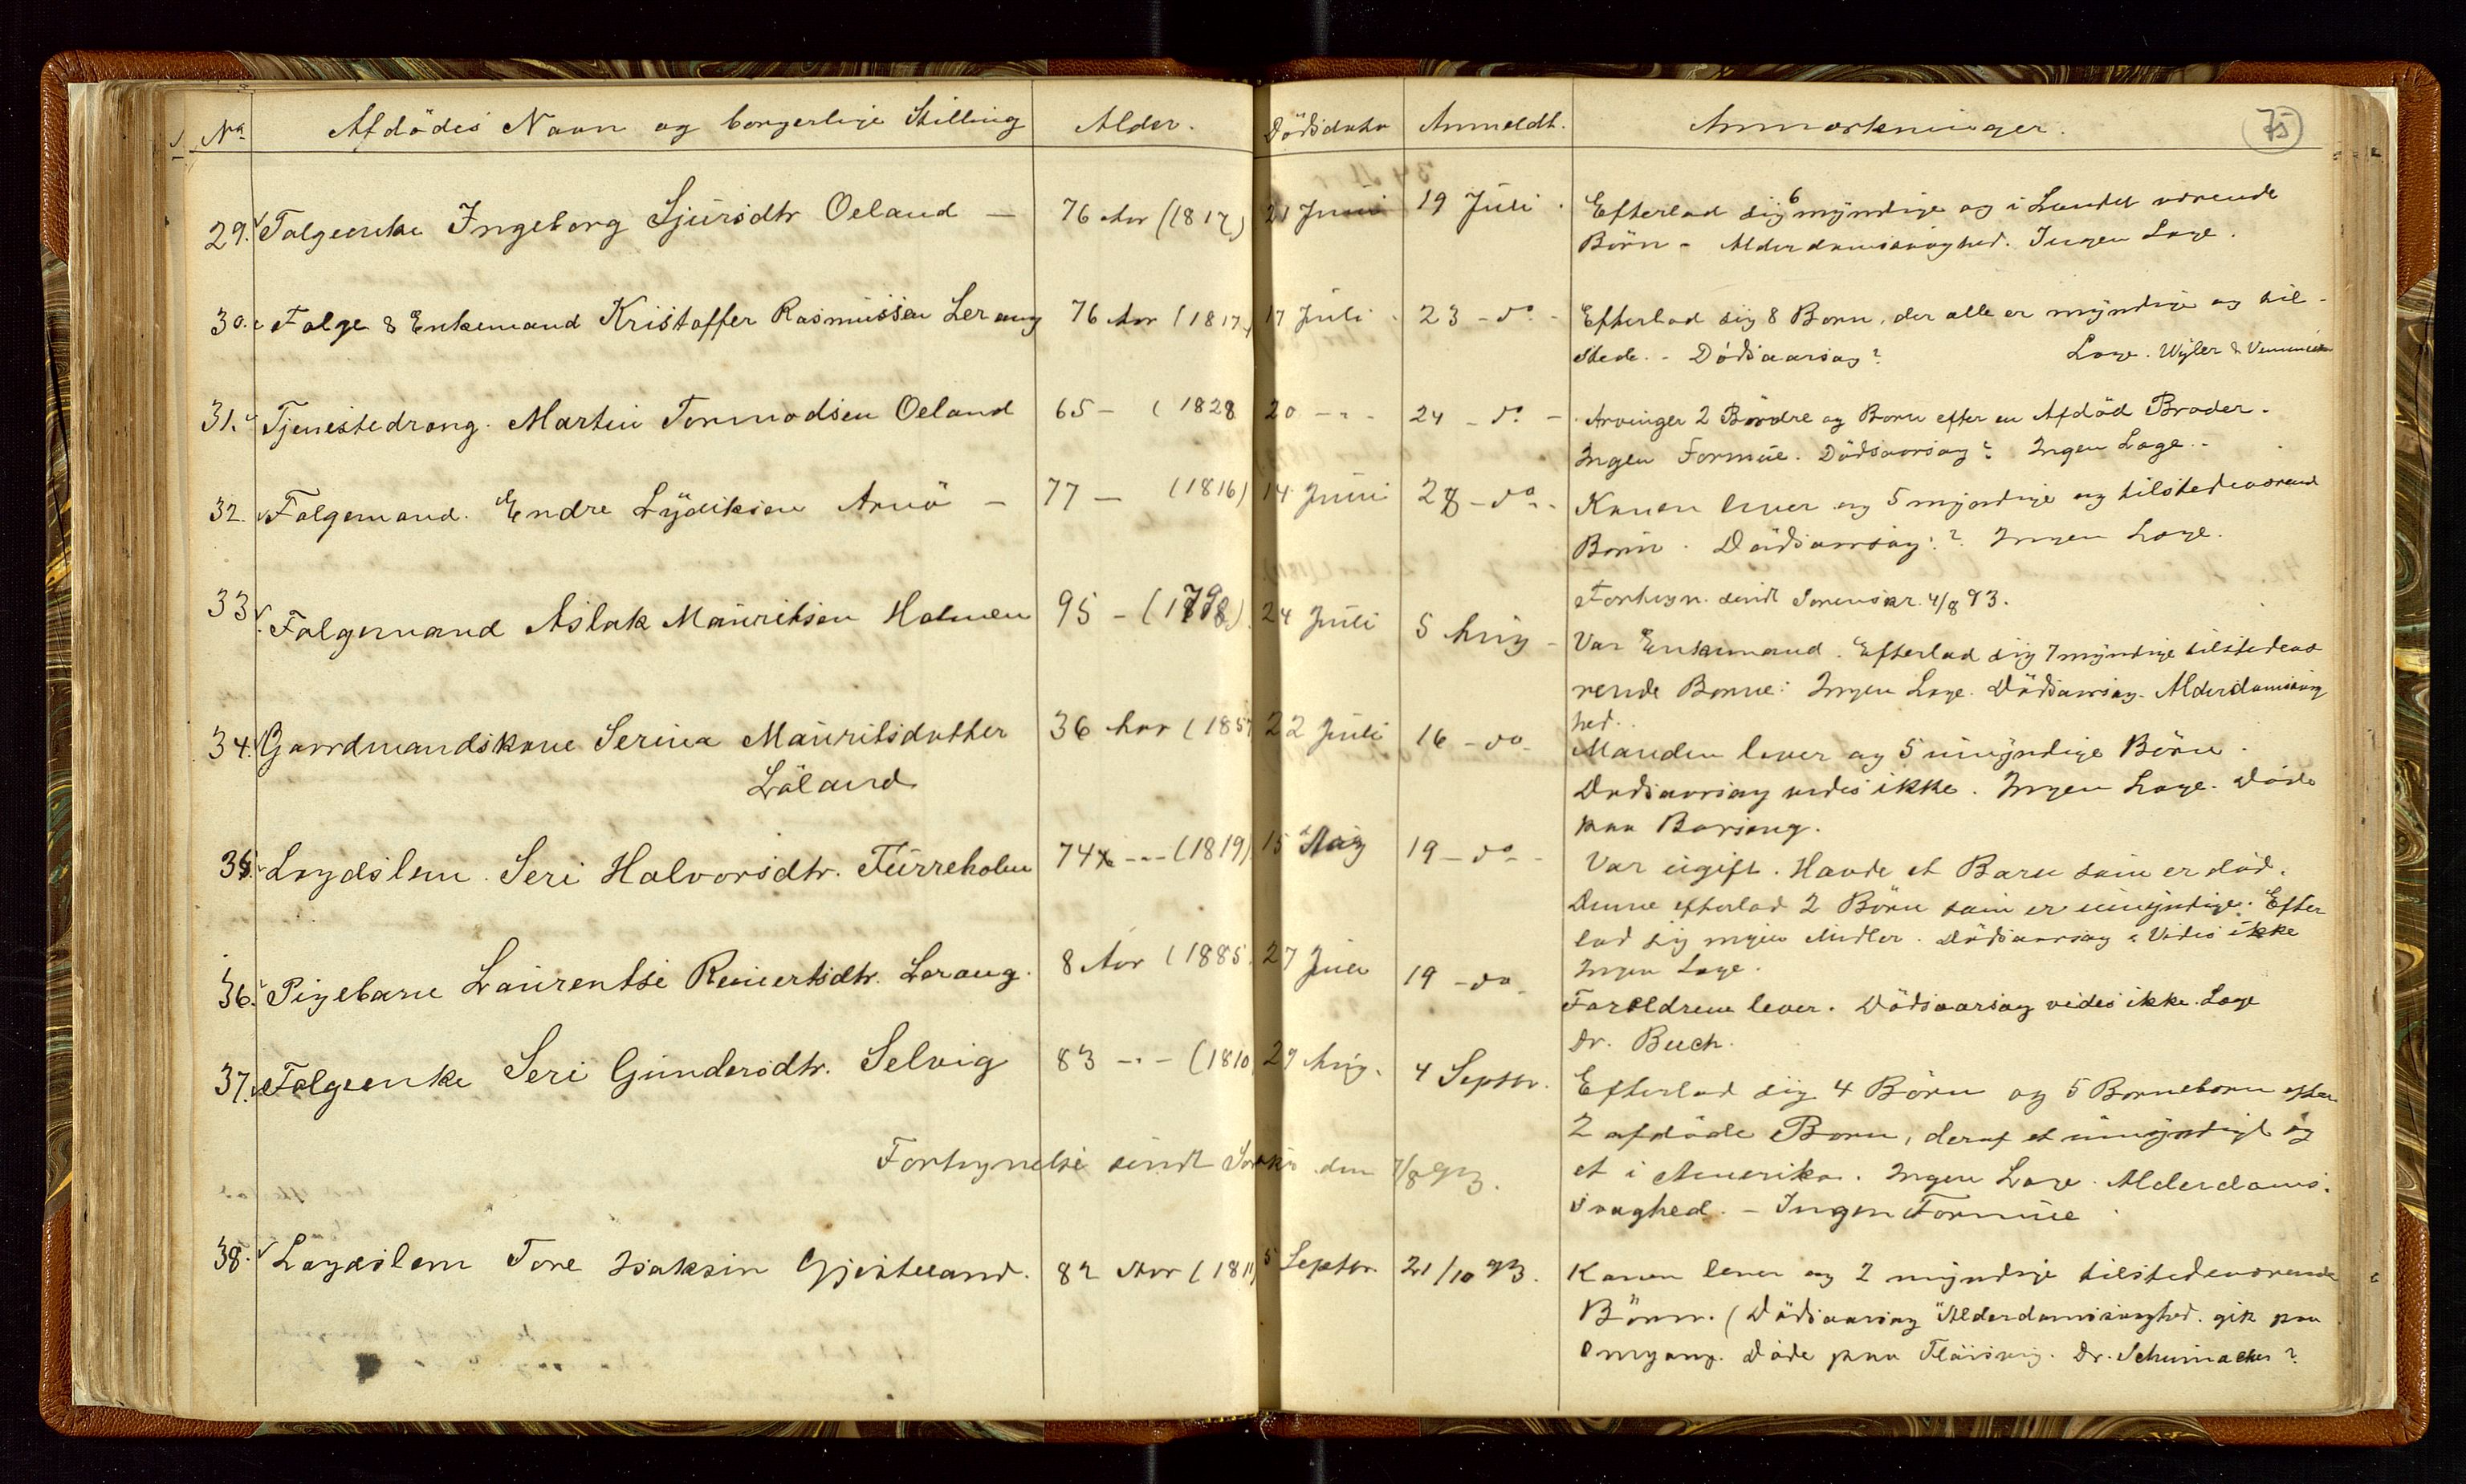 No. Afdödes Navn og borgerlige Stilling Alder. Dödsdato Anmeldt. Anmærkninger. 75
29. Folgeenke Ingeborg Sjursdtr Oeland — 76 Aar (1817) 21 Juni 19 Juli. Efterlod sig 6 myndige og i Landet værende
Börn - Alderdomssvaghed. Ingen Læge.
30. Folge & Enkemand Kristoffer Rasmussen Lerang 76 Aar (1817) 17 Juli 23 - do - Efterlod sig 8 Born, der alle er myndige og til-
stede. - Dödsaarsag? Læge. Wyler &
31. Tjenestedrang. Martin Tormodsen Oeland 65 - (1828 20 - " - 24 - do - Arvinger 2 Bördre og Born efter en Afdöd Broder.
Ingen Formue. Dödsaarsag? Ingen Læge.
32. Folgemand. Endre Lydiksen Arnö — 77 — (1816) 14 Juni 28 - do - Konen lever og 5 myndige og tilstedeværend
Börn. Dödsaarsag? Ingen Læge.
Fortegn. sendt Sorenskr. 4/8 93.
33. Folgemand Aslak Mauritsen Holmen 95 - (1798) 24 Juli 5 Aug - Var Enkemand. Efterlod sig 7 myndige tilstedevæ
rende Bornn: Ingen Læge. Dödsaarsag. Alderdomssvag
hed.
34. Gaardmandskone Serina Mauritsdatter 36 Aar (1857 22 Juli 16 - do - Manden lever og 5 umyndige Börn.
Löland Dödsaarsag vides ikke. Ingen Læge. Döde
paa Barseng.
35. Lægdslem. Seri Halvorsdtr. Furreholm 74 - " - (1819) 15 Aug 19 - do - Var ugift. Havde et Barn som er död.
Denne efterlod 2 Börn som er umyndige. Efter
lod sig ingen Midler. Dödsaarsag: Vides ikke
Ingen Læge.
36. Pigebarn Laurentse Reiertsdtr. Lerang. 8 Aar (1885. 27 19 - do - Foreldrene lever. Dödsaarsag vides ikke. Læge
Dr. Buch.
37. Folgeenke Seri Gundersdtr. Selvig 83 - " - (1810 29 Aug. 4 Septbr. Efterlod sig 4 Börn og 5 Borneborn efter
2 afdöde Born, deraf et umyndigt og
Fortegnelse sendt Sorskr. den 7/8 93. et i Amerika. Ingen Læge. Alderdoms-
svaghed. - Ingen Formue
38. Lægdslem Tore Isaksen Gjesteland. 82 Aar (1811) 5 Septbr. 21/10 93. Konen lever og 2 myndige tilstedeværende
Börn. (Dödsaarsag Alderdomssvaghed. gik paa
Omgang. Döde paa. Dr. Schumacher?